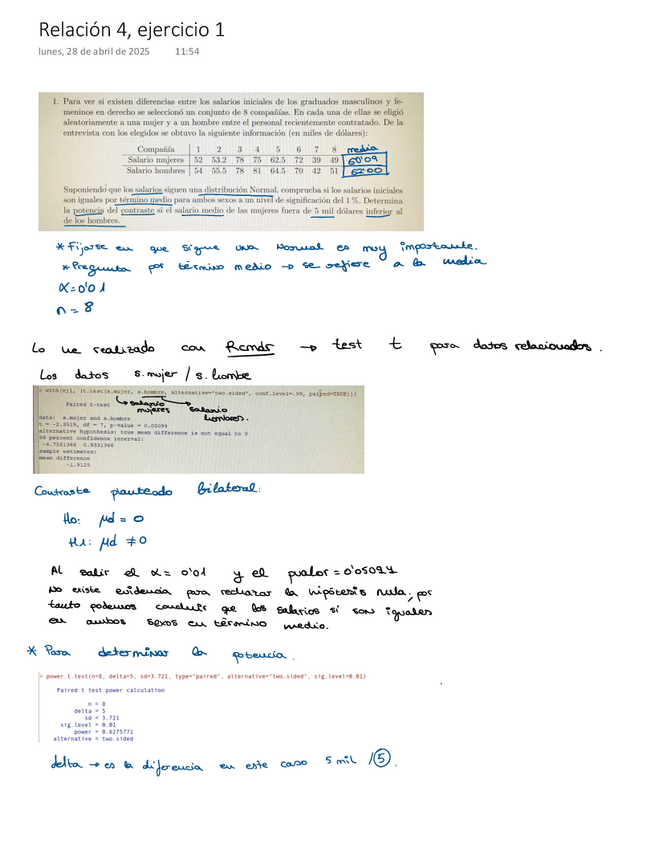 Relación 4, ejercicio 1
lunes, 28 de abril de 2025 11:54
1. Para ver si existen diferencias entre los salarios iniciales de los graduados masculinos y fe-
meninos en derecho se seleccionó un conjunto de 8 compañías. En cada una de ellas se eligió
aleatoriamente a una mujer y a un hombre entre el personal recientemente contratado. De la
entrevista con los elegidos se obtuvo la siguiente información (en miles de dólares):
Compañía 1 2 3 4 5 6 7 8 media
Salario mujeres 52 53.2 78 75 62.5 72 39 49 60'09
Salario hombres 54 55.5 78 81 64.5 70 42 51 62'00
Suponiendo que los salarios siguen una distribución Normal, comprueba si los salarios iniciales
son iguales por término medio para ambos sexos a un nivel de significación del 1 %. Determina
la potencia del contraste si el salario medio de las mujeres fuera de 5 mil dólares inferior al
de los hombres.
* Fijarse en que sigue una Normal es muy importante.
* Pregunta por término medio → se refiere a la media
α = 0'01
n = 8
Lo he realizado con Rcmdr → test t para datos relacionados.
Los datos s.mujer / s.hombre
> with(ej1, (t.test(s.mujer, s.hombre, alternative="two.sided", conf.level=.99, paired=TRUE)))
Paired t-test
salario mujeres
salario hombres.
data: s.mujer and s.hombre
t = -2.3519, df = 7, p-value = 0.05094
alternative hypothesis: true mean difference is not equal to 0
99 percent confidence interval:
sample estimates:
mean difference
-1.9125
Contraste planteado bilateral:
H0: μd = 0
H1: μd ≠ 0
Al salir el α = 0'01 y el pvalor = 0'05094
No existe evidencia para rechazar la hipótesis nula; por
tanto podemos concluir que los salarios sí son iguales
en ambos sexos en término medio.
* Para determinar la potencia.
> power.t.test(n=8, delta=5, sd=3.721, type="paired", alternative="two.sided", sig.level=0.01)
Paired t test power calculation
n = 8
delta = 5
sd = 3.721
sig.level = 0.01
power = 0.6275771
alternative = two.sided
delta → es la diferencia en este caso 5 mil / 5.